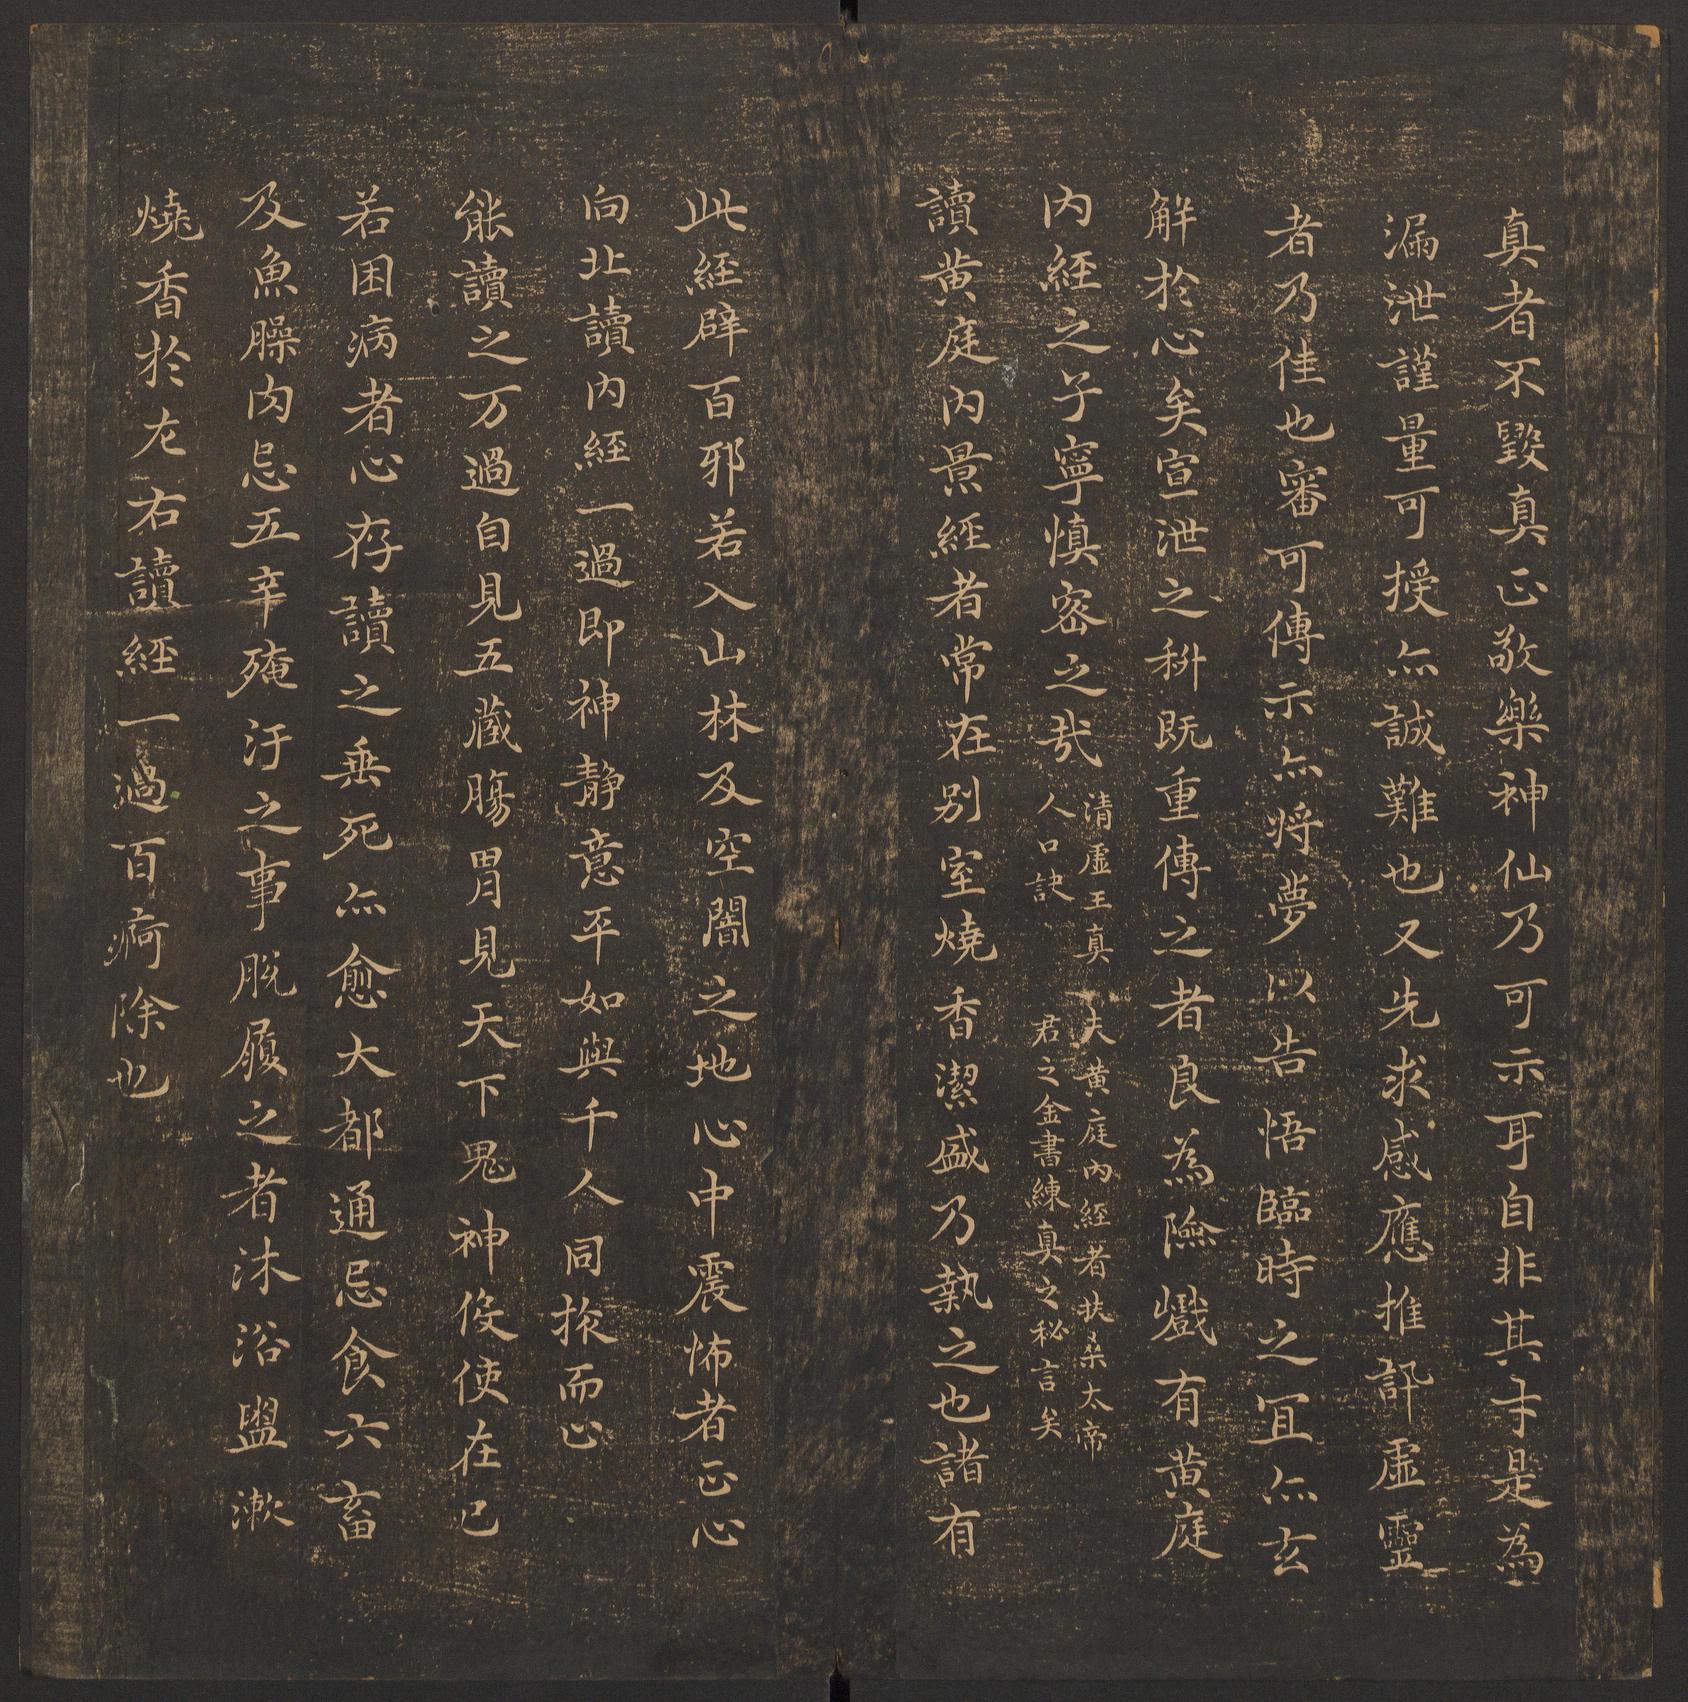 真者不毀真正敬樂神仙乃可示耳自非其才是為
漏泄謹量可授亦誠難也又先求感應推訊虛靈
者乃佳也審可傳示亦將夢以告悟臨時之宜亦玄
解於心矣宣泄之科既重傳之者良為險巇有黃庭
內經之子寧慎密之哉
清虛王真
人口訣
夫黃庭內經者扶桑太帝
君之金書練真之秘言矣
讀黃庭內景經者常在別室燒香潔盛乃執之也諸有
此經辟百邪若入山林及空闇之地心中震怖者正心
向北讀內經一過即神靜意平如與千人同旅而止
能讀之万過自見五藏腸胃見天下鬼神役使在己
若困病者心存讀之垂死亦愈大都通忌食六畜
及魚臊肉忌五辛殗汙之事脫履之者沐浴盥漱
燒香於左右讀經一過百痾除也